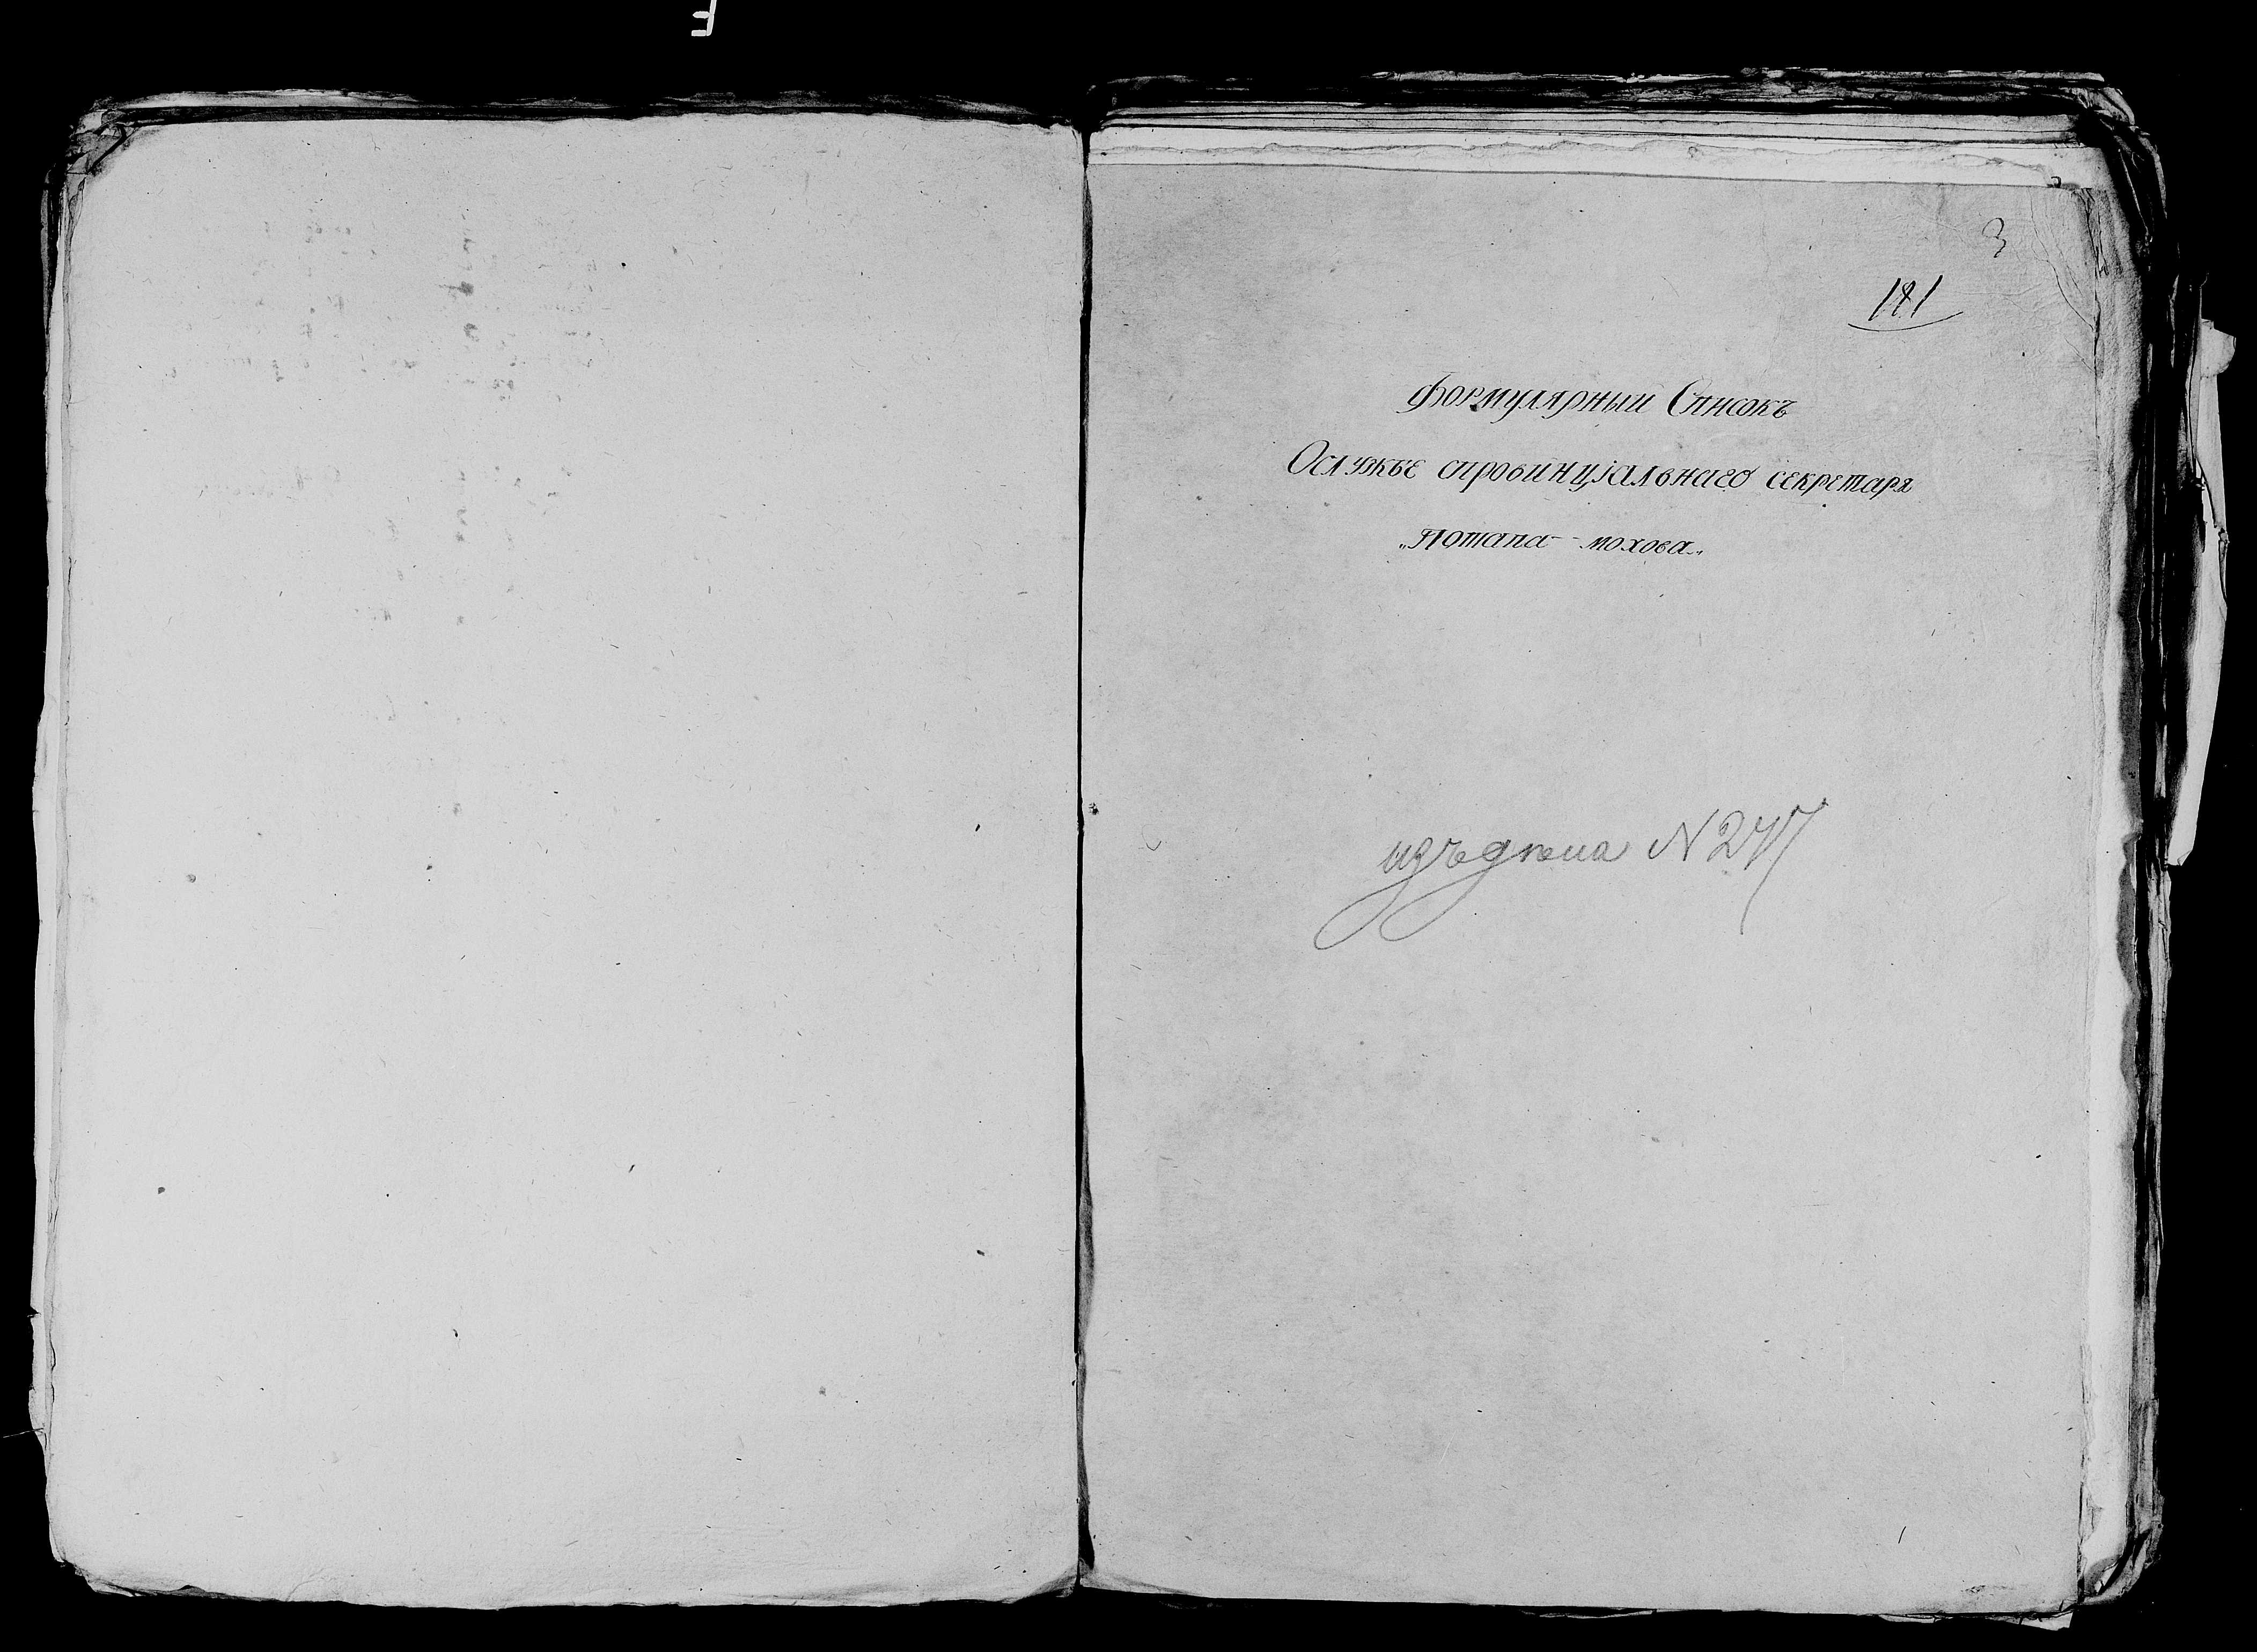 3
181
Формулярныи Списокъ
Ослужбе спровинцıальнаго секретаря
„Потапа - мохова„
изъ дела N 277